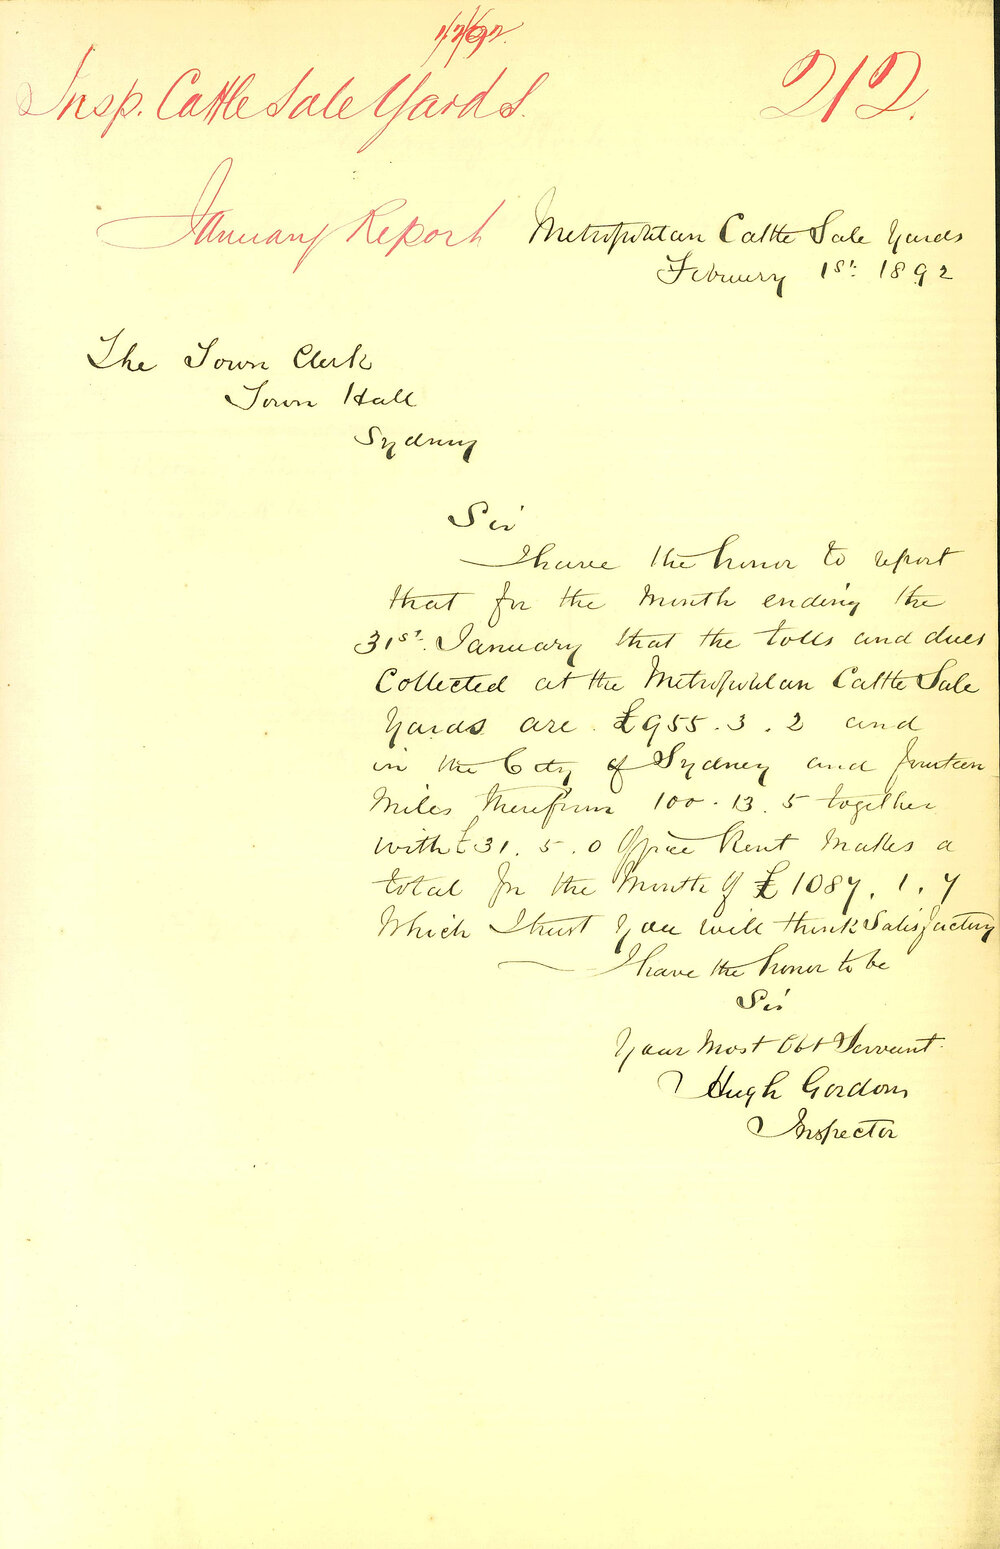 1/2/92
Insp. Cattle Sale Yards.
212.
January Report
Metropolitan Cattle Sale Yards
February 1st. 1892
The Town Clerk
Town Hall
Sydney
Sir
I have the honor to report
that for the Month ending the
31st. January that the tolls and dues
Collected at the Metropolitan Cattle Sale
Yards are £955.3.2 and
in the City of Sydney and fourteen
Miles therefrom 100.13.5 together
with £31.5.0 Office Rent Makes a
total for the Month of £1087.1.7
Which I trust you will think Satisfactory
I have the honor to be
Sir
Your Most Obt Servant
Hugh Gordon
Inspector